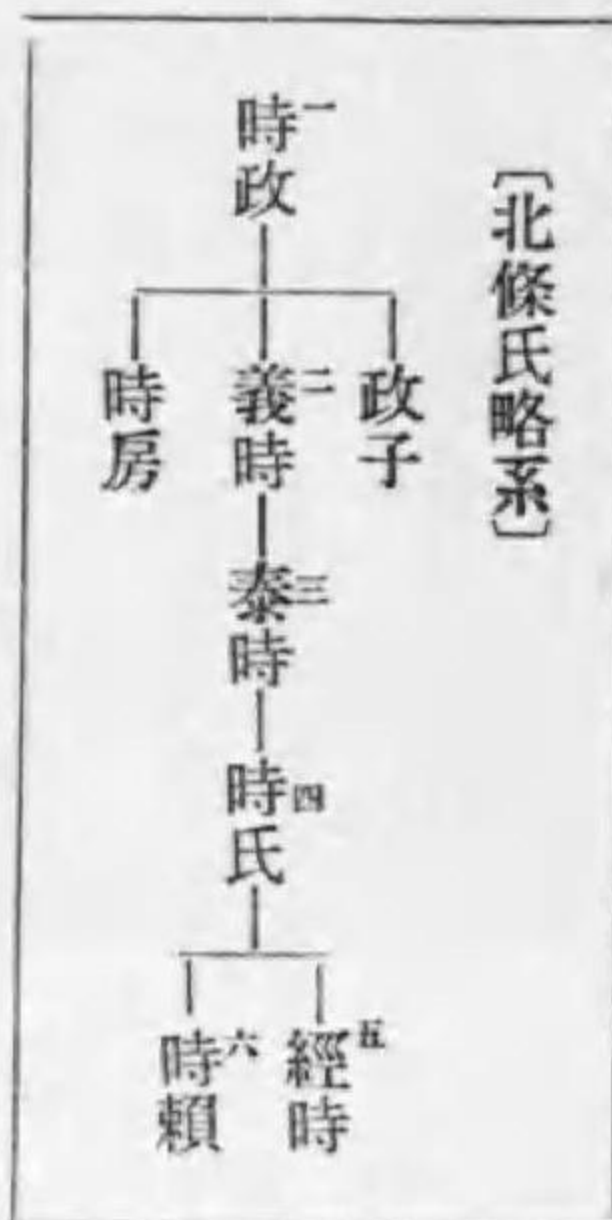 〔北條氏略系〕
一
時政
政子
二
義時
時房
三
泰時
四
時氏
五
經時
六
時頼